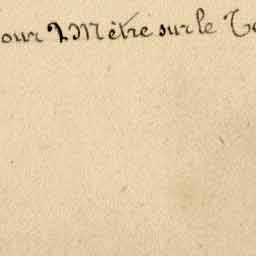 our 1 Mètre sur le